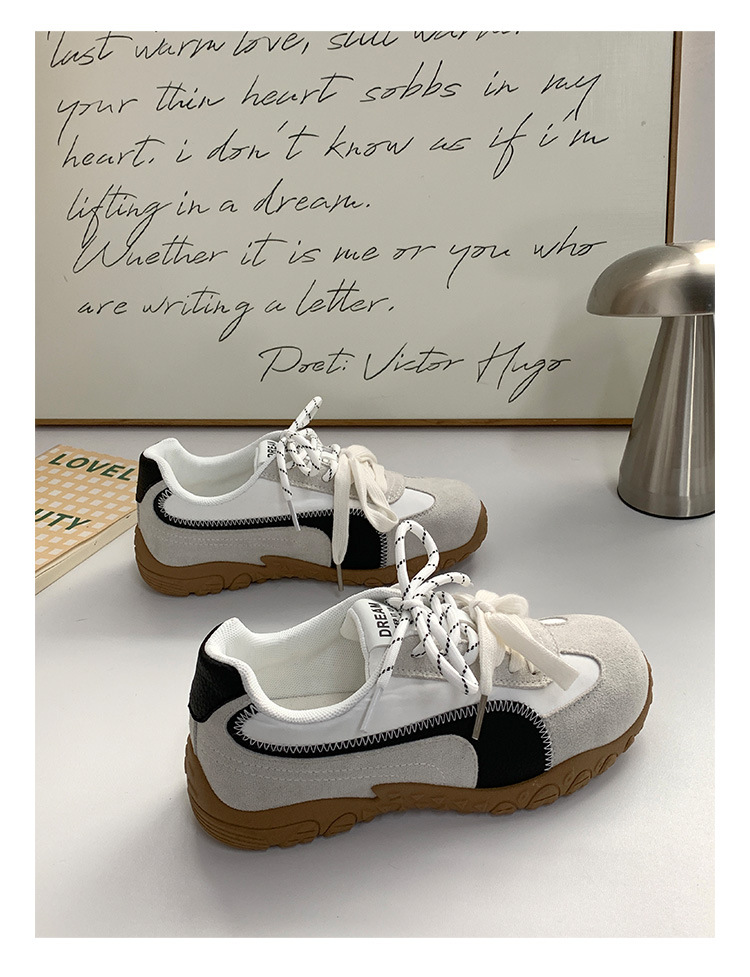 last warm love, still warm.
your thin heart sobbs in my
heart. i don't know as if i'm
lifting in a dream.
Whether it is me or you who
are writing a letter.
Poet: Victor Hugo
LOVEL
UTY
DREAM
DREAM